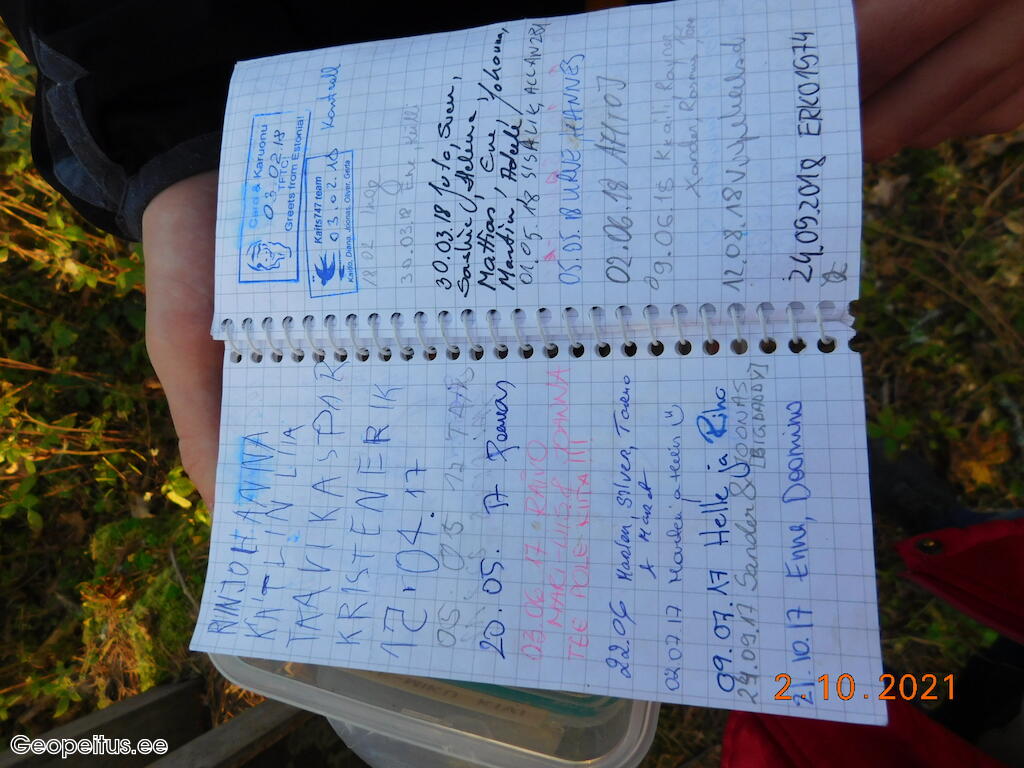 RINJOHANNA
KATLIN LIA
TAAVI KASPAR
KRISTEN ERIK
17.04.17
05.05.17 TAAR
20.05.17
03.06.17 RAIVO
MARI-LIIS & JOANNA
TEE POLE KITA!!!
22.06 Marlen Silver, Tarmo
& Maret
02.07.17
09.07.17 Helle ja Riho
24.09.17 Sander & JOONAS
[BIGDADDY]
21.10.17 Emma, Doomino
Card & Karuonu
03.02.18
TFTC
Greets from Estonia!
Kaits747 team
03.02.18
Kaido, Diana, Joonas, Oliver, Gerta
18.02
30.03.18 Ene Külli
30.03.18 Juta, Sven,
Saskia, Helena,
Mathias, Eve, Johanna,
Martin, Adeele,
01.05.18 SISALIK, ALLAN281
05.05.18 URVE HANNES
02.06.18
09.06.18 Kaili, Rayner
Xander, Rasmus,
12.08.18
24.09.2018 ERKO1974
2.10.2021
Geopeitus.ee